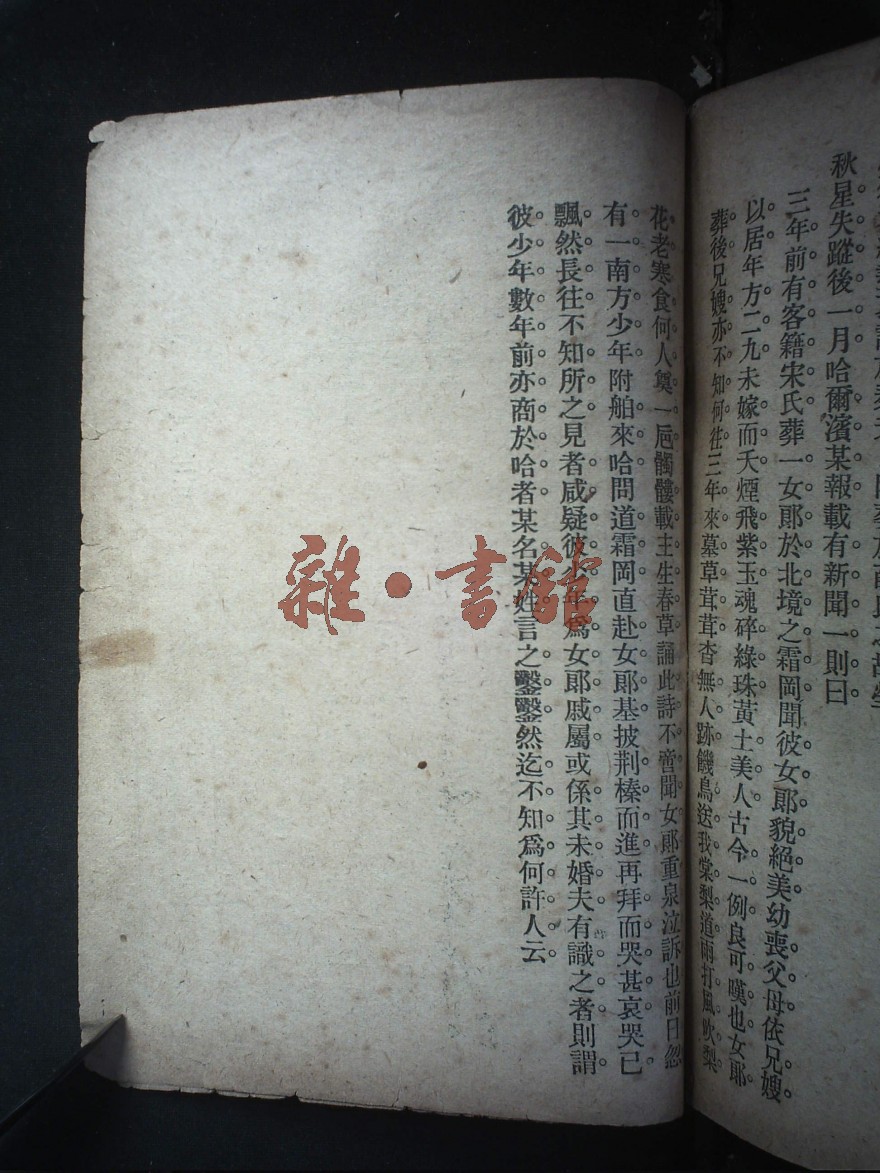 秋星失蹤後一月哈爾濱某報載有新聞一則曰
三年前有客籍宋氏葬一女郎於北境之霜岡聞彼女郎貌絕美幼喪父母依兄嫂
以居年方二九未嫁而夭煙飛紫玉魂碎綠珠黃土美人古今一例良可嘆也女郎
葬後兄嫂亦不知何往三年來墓草茸茸杳無人跡饑鳥送我棠梨道雨打風吹梨
花老寒食何人奠一巵髑髏載主生春草誦此詩不啻聞女郎重泉泣訴也前日忽
有一南方少年附舶來哈問道霜岡直赴女郎墓披荆榛而進再拜而哭甚哀哭已
飄然長往不知所之見者咸疑彼少年爲女郎戚屬或係其未婚夫有識之者則謂
彼少年數年前亦商於哈者某名某姓言之鑿鑿然迄不知爲何許人云
雜·書館